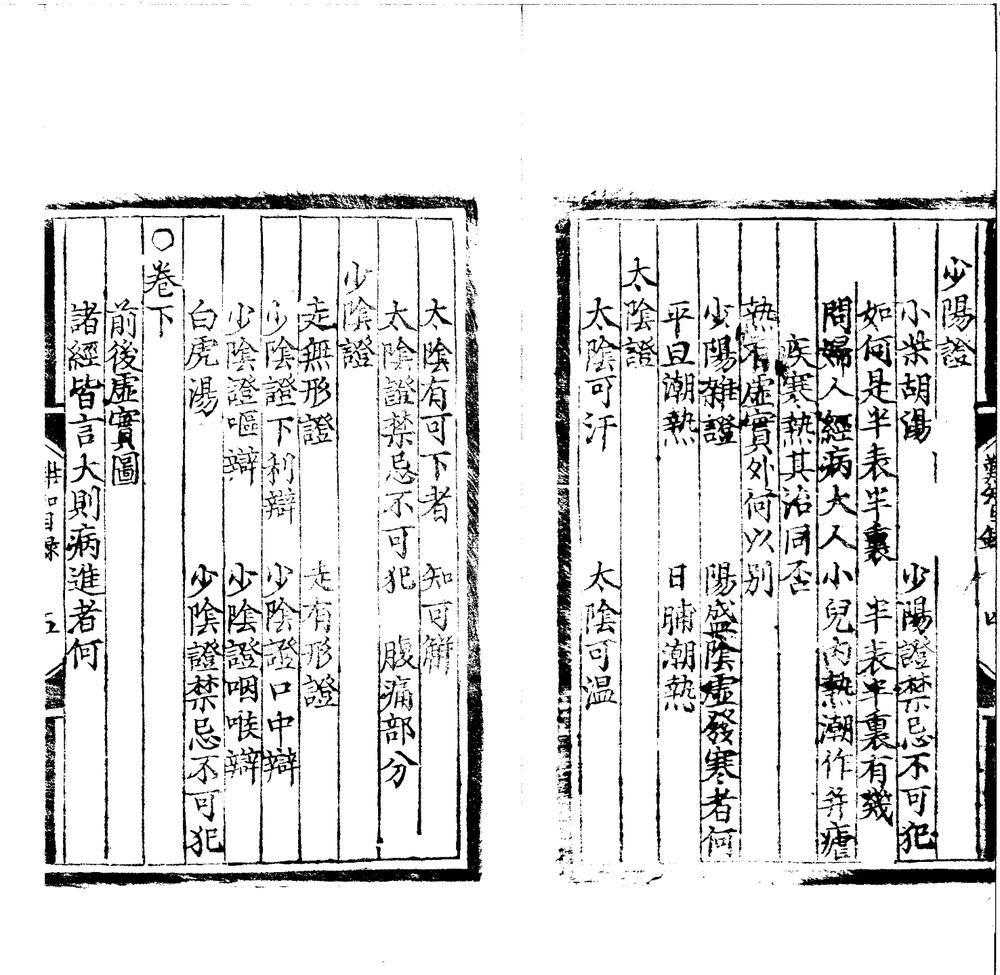 少陽證
小柴胡湯　少陽證禁忌不可犯
如何是半表半裏　半表半裏有幾
問婦人經病大人小兒内熱潮作并瘧
疾寒熱其治同否
熱有虛實外何以别
少陽雜證　陽盛陰虛發寒者何
平旦潮熱　日晡潮熱
太陰證
太陰可汗　太陰可温
四
太陰有可下者　知可解
太陰證禁忌不可犯　腹痛部分
少陰證
走無形證　走有形證
少陰證下利辯　少陰證口中辯
少陰證嘔辯　少陰證咽喉辯
白虎湯　少陰證禁忌不可犯
○卷下
前後虛實圖
諸經皆言大則病進者何
目録　五